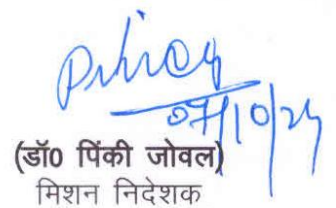 07/10/24
(डॉ0 पिंकी जोवल)
मिशन निदेशक